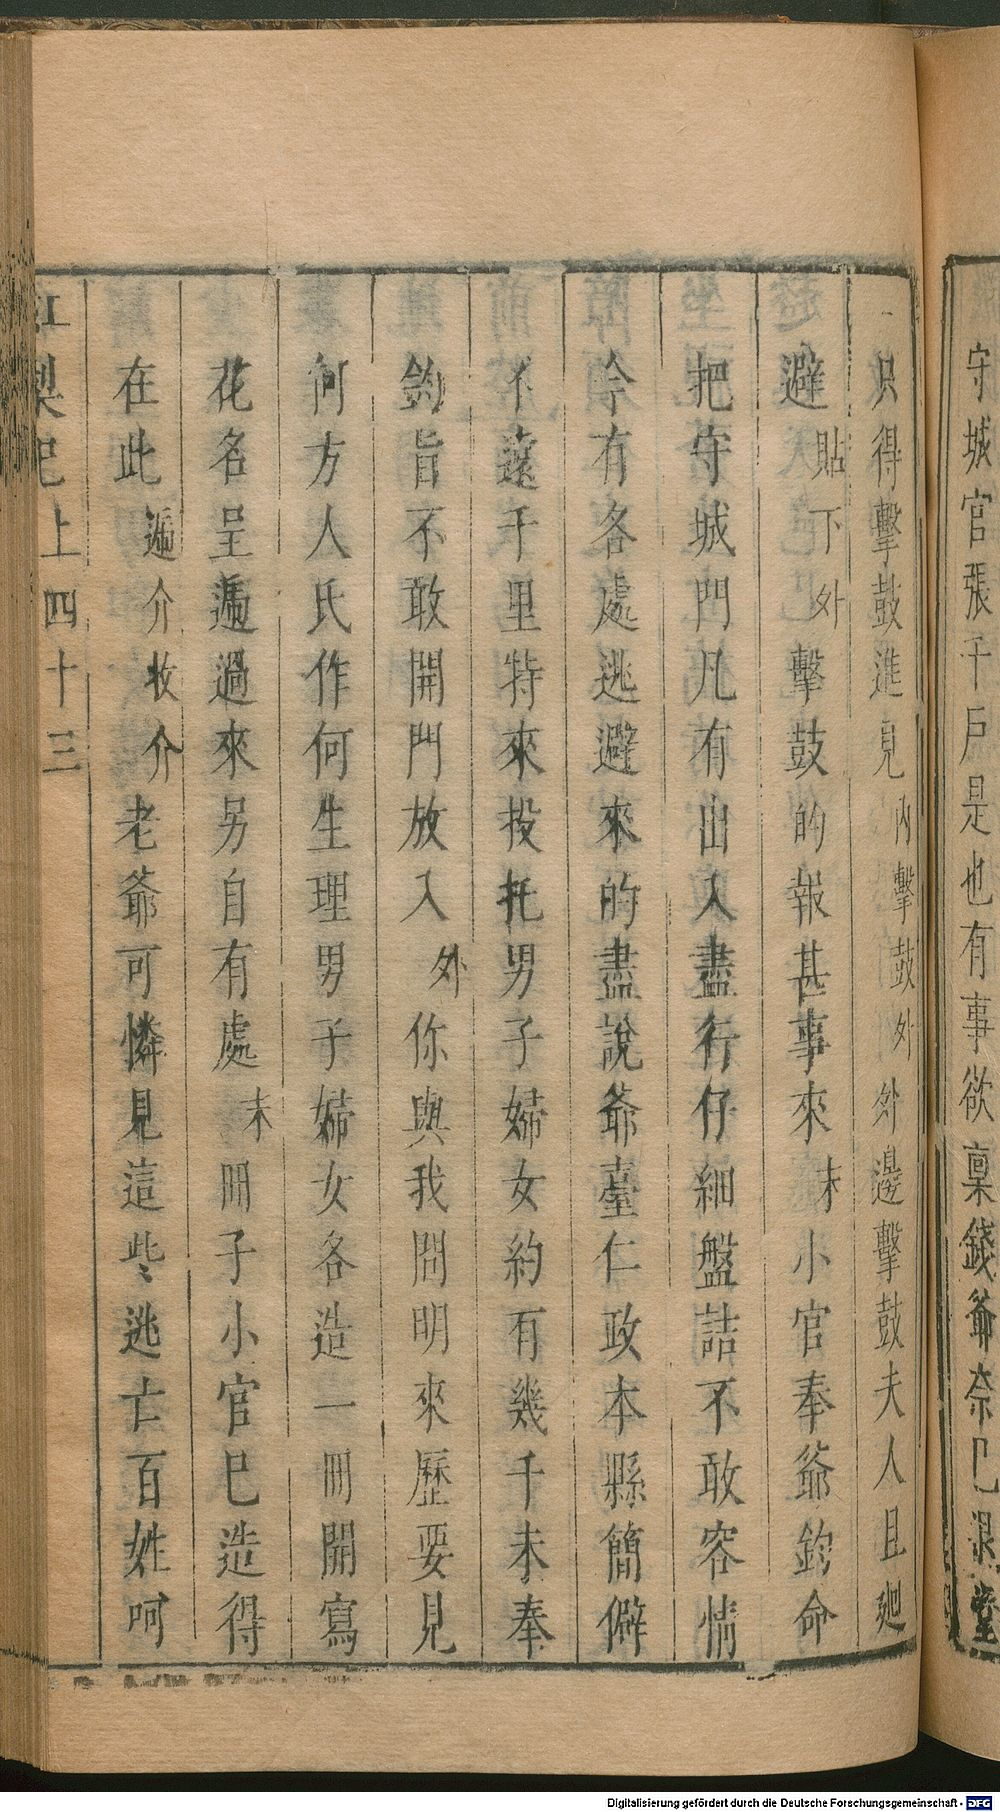 守城官張千戶是也有事欲稟錢爺奈已退堂
只得擊鼓進見內擊鼓外外邊擊鼓夫人且廻
避貼下外擊鼓的報甚事來末小官奉爺鈞命
把守城門凡有出入盡行仔細盤詰不敢容情
今有各處逃避來的盡說爺臺仁政本縣簡僻
不遠千里特來投托男子婦女約有幾千未奉
鈞旨不敢開門放入外你與我問明來歷要見
何方人氏作何生理男子婦女各造一冊開寫
花名呈遞過來另自有處末冊子小官巳造得
在此遞介收介老爺可憐見這些逃亡百姓呵
紅梨記上四十三
Digitalisierung gefördert durch die Deutsche Forschungsgemeinschaft - DFG